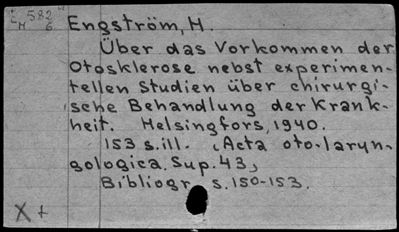 E 582 Engström, H.
M 6
Über das Vorkommen der
Otosklerose nebst experimen-
tellen Studien über chirurgi-
sche Behandlung der Krank-
heit. Helsingfors, 1940.
153 s. ill. (Acta oto-laryn-
gologica. Sup. 43)
Bibliogr. s. 150-153.
X +